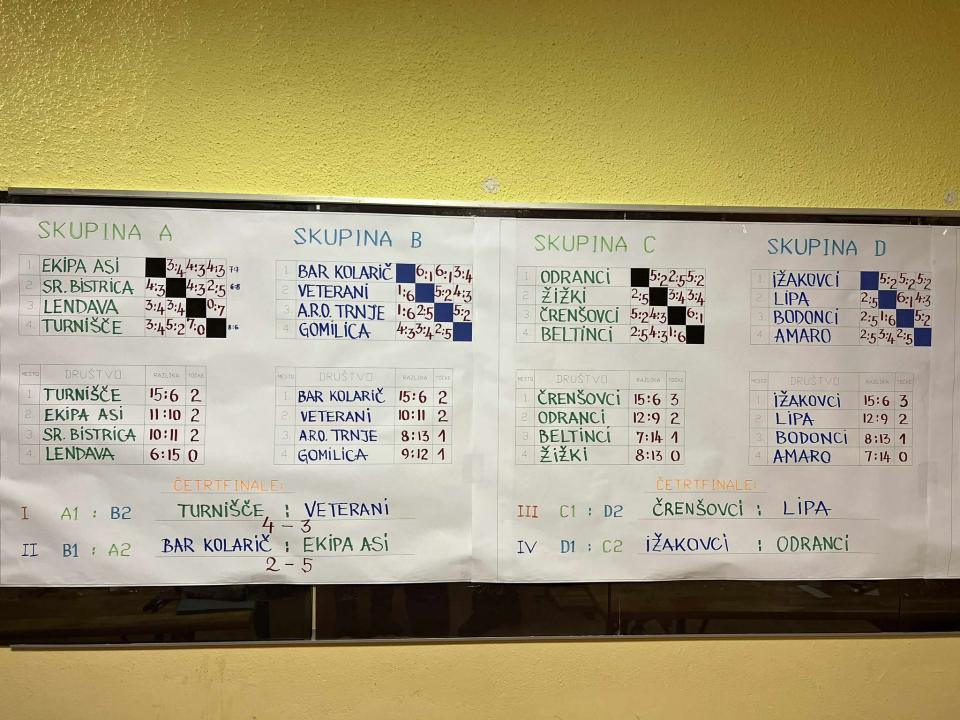 SKUPINA A
1 EKIPA ASI 3:4 4:3 4:3 7:7
2 SR. BISTRICA 4:3 4:3 2:5 6:8
3 LENDAVA 3:4 3:4 0:7
4 TURNIŠČE 3:4 5:2 7:0 8:6
MESTO DRUŠTVO RAZLIKA TOČKE
1 TURNIŠČE 15:6 2
2 EKIPA ASI 11:10 2
3 SR. BISTRICA 10:11 2
4 LENDAVA 6:15 0
SKUPINA B
1 BAR KOLARIČ 6:1 6:1 3:4
2 VETERANI 1:6 5:2 4:3
3 A.R.O. TRNJE 1:6 2:5 5:2
4 GOMILICA 4:3 3:4 2:5
MESTO DRUŠTVO RAZLIKA TOČKE
1 BAR KOLARIČ 15:6 2
2 VETERANI 10:11 2
3 A.R.O. TRNJE 8:13 1
4 GOMILICA 9:12 1
ČETRTFINALE:
I A1 : B2 TURNIŠČE : VETERANI
4 – 3
II B1 : A2 BAR KOLARIČ : EKIPA ASI
2 – 5
SKUPINA C
1 ODRANCI 5:2 2:5 5:2
2 ŽIŽKI 2:5 3:4 3:4
3 ČRENŠOVCI 5:2 4:3 6:1
4 BELTINCI 2:5 4:3 1:6
MESTO DRUŠTVO RAZLIKA TOČKE
1 ČRENŠOVCI 15:6 3
2 ODRANCI 12:9 2
3 BELTINCI 7:14 1
4 ŽIŽKI 8:13 0
SKUPINA D
1 IŽAKOVCI 5:2 5:2 5:2
2 LIPA 2:5 6:1 4:3
3 BODONCI 2:5 1:6 5:2
4 AMARO 2:5 3:4 2:5
MESTO DRUŠTVO RAZLIKA TOČKE
1 IŽAKOVCI 15:6 3
2 LIPA 12:9 2
3 BODONCI 8:13 1
4 AMARO 7:14 0
ČETRTFINALE:
III C1 : D2 ČRENŠOVCI : LIPA
IV D1 : C2 IŽAKOVCI : ODRANCI